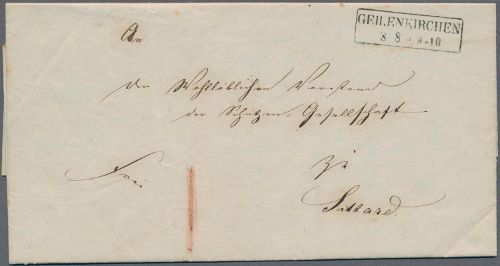 GEILENKIRCHEN
8 8 9-10
An
den Wohllöblichen Vorstand
der Schützen-Gesellschaft
zu
Frei
Sittard.